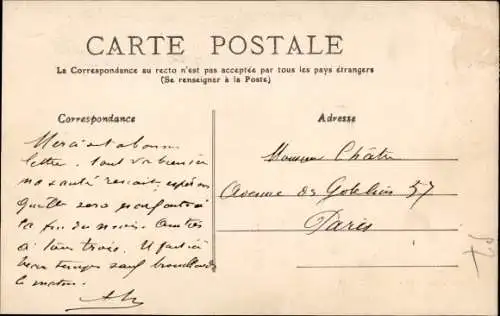 CARTE POSTALE
La Correspondance au recto n'est pas acceptée par tous les pays étrangers
(Se renseigner à la Poste)
Correspondance
Adresse
Merci ta bonne
lettre. Tout va bien
santé
sera parfaite à
la fin du mois. Amitiés
à tous trois. Il fait ici
beau temps sauf brouillard
le matin.
Monsieur Châtre
Avenue des Gobelins 57
Paris